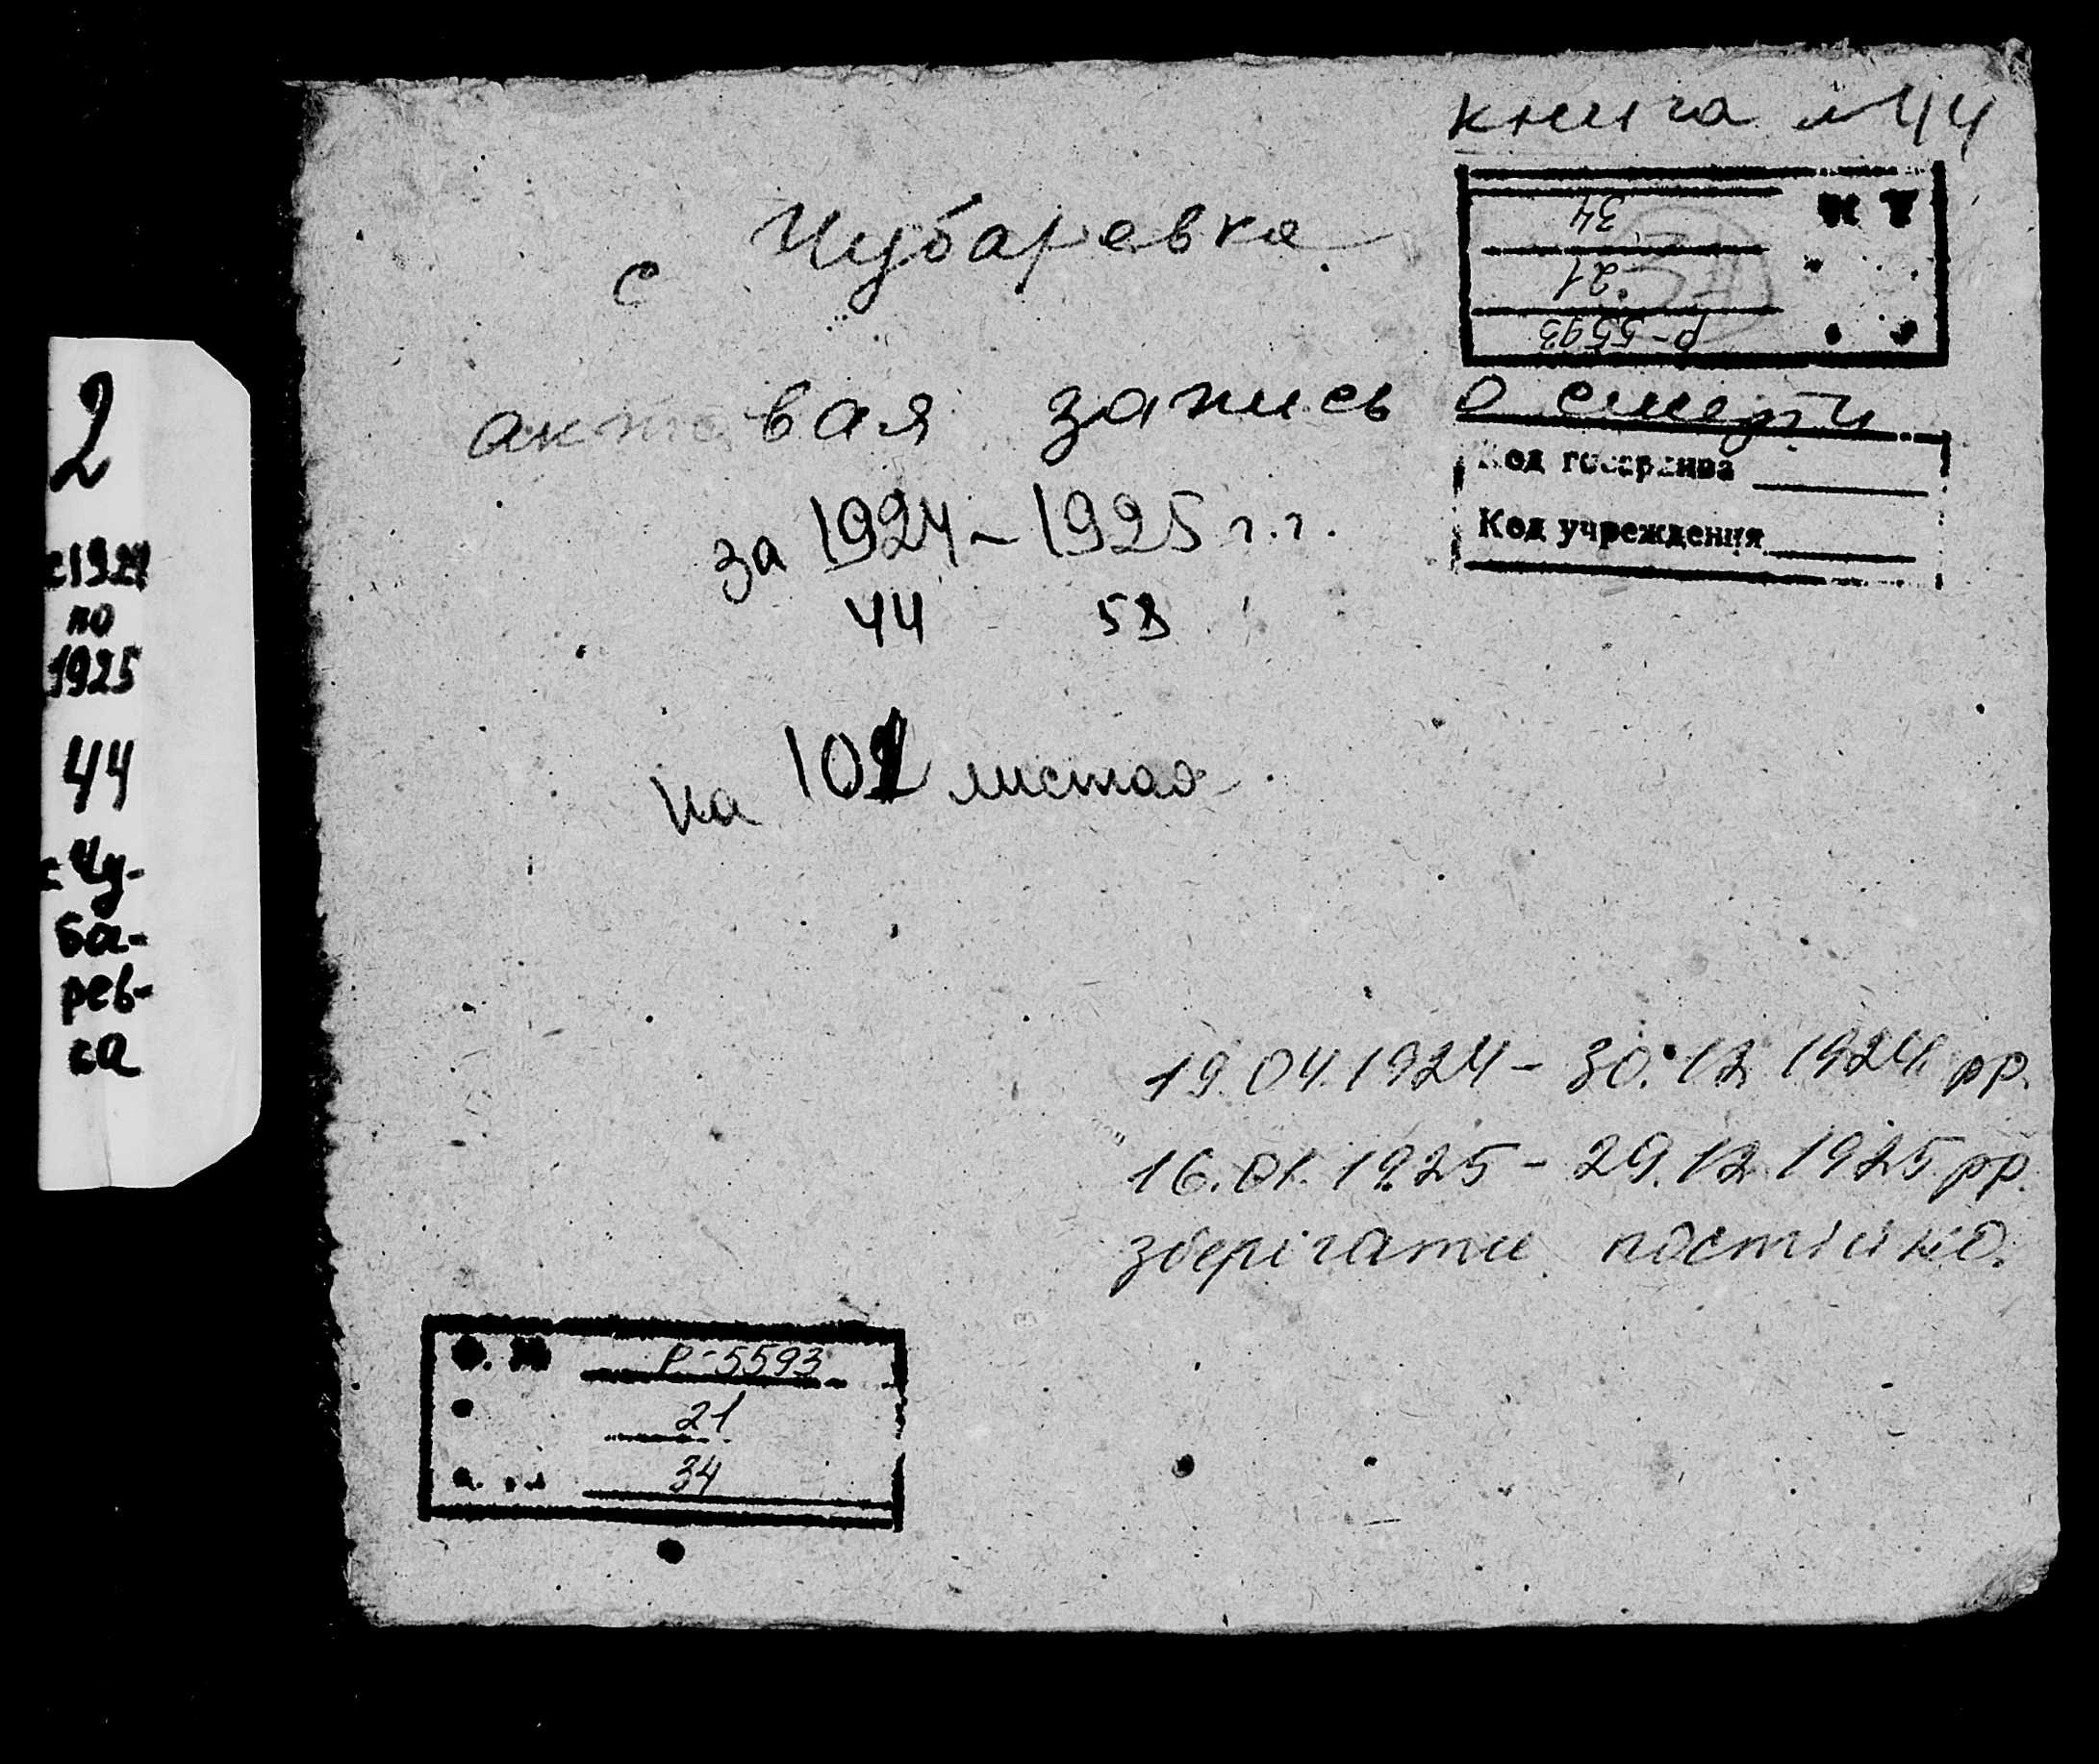 книга №44
34
21
Р-5593
с Чубаревка
актовая запись о смерти
Код госархива
Код учреждения
за 1924-1925 г.г.
44 58
на 101 листах
2
с 1924
по
1925
44
с Чу-
ба-
рев-
ка
19.04.1924 - 30.12 1924 рр.
16.01.1925 - 29.12 1925 рр.
зберігати постійно.
Р-5593
21
34